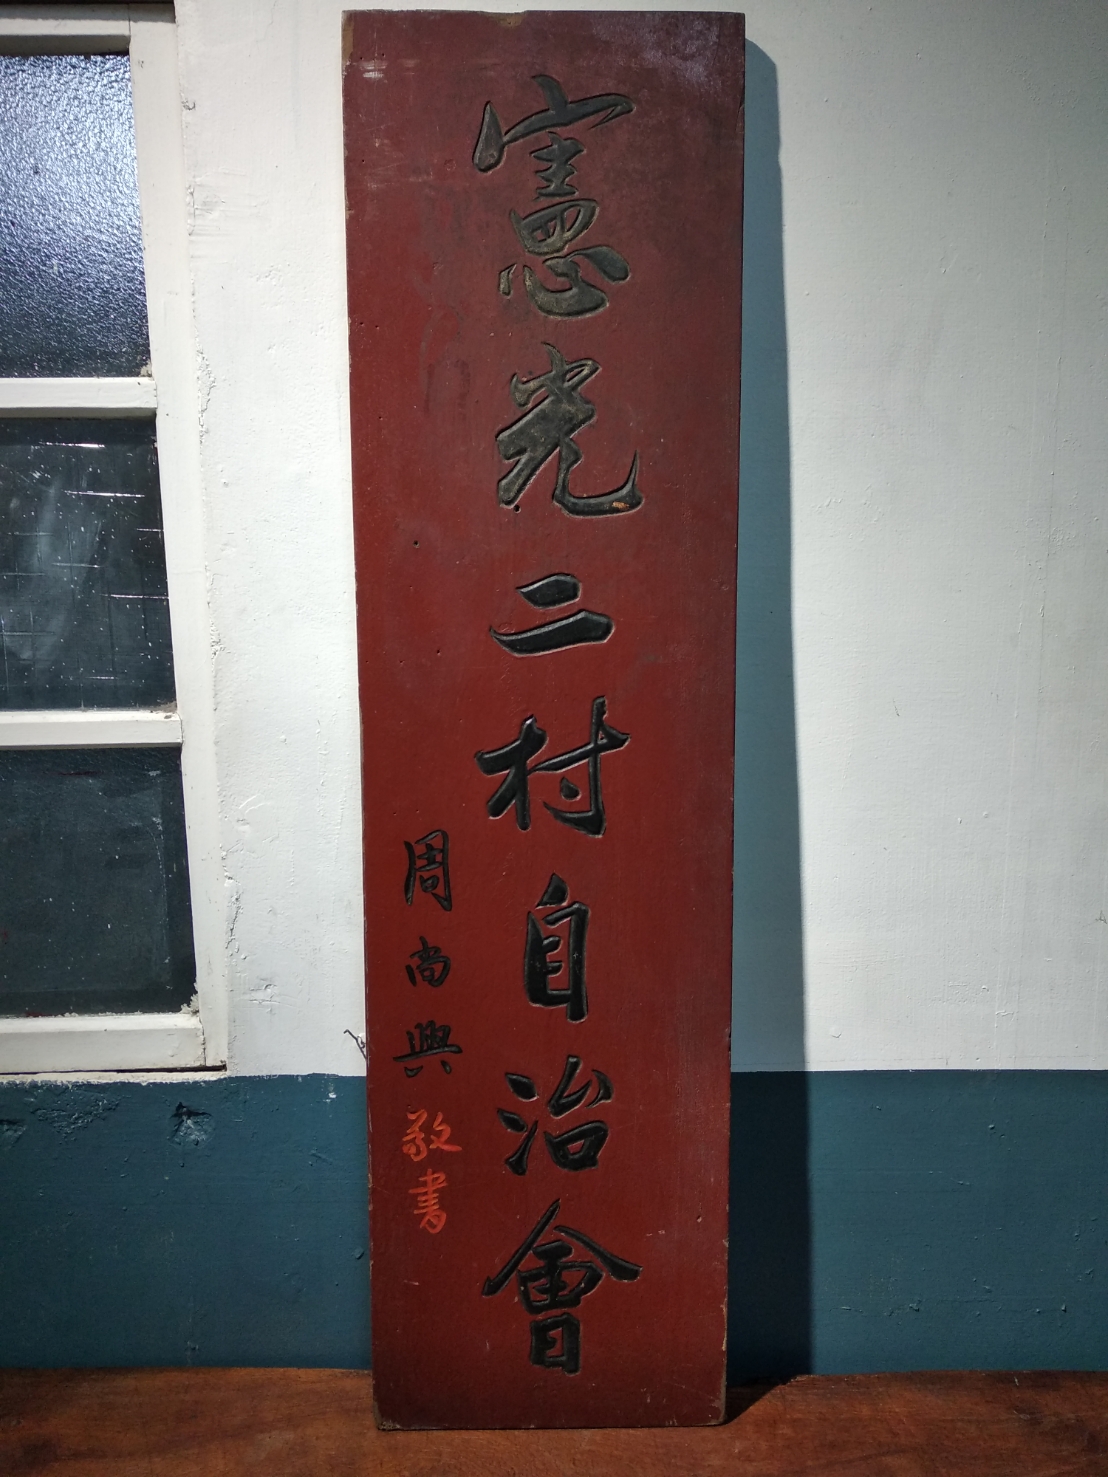 憲光二村自治會
周尚興敬書